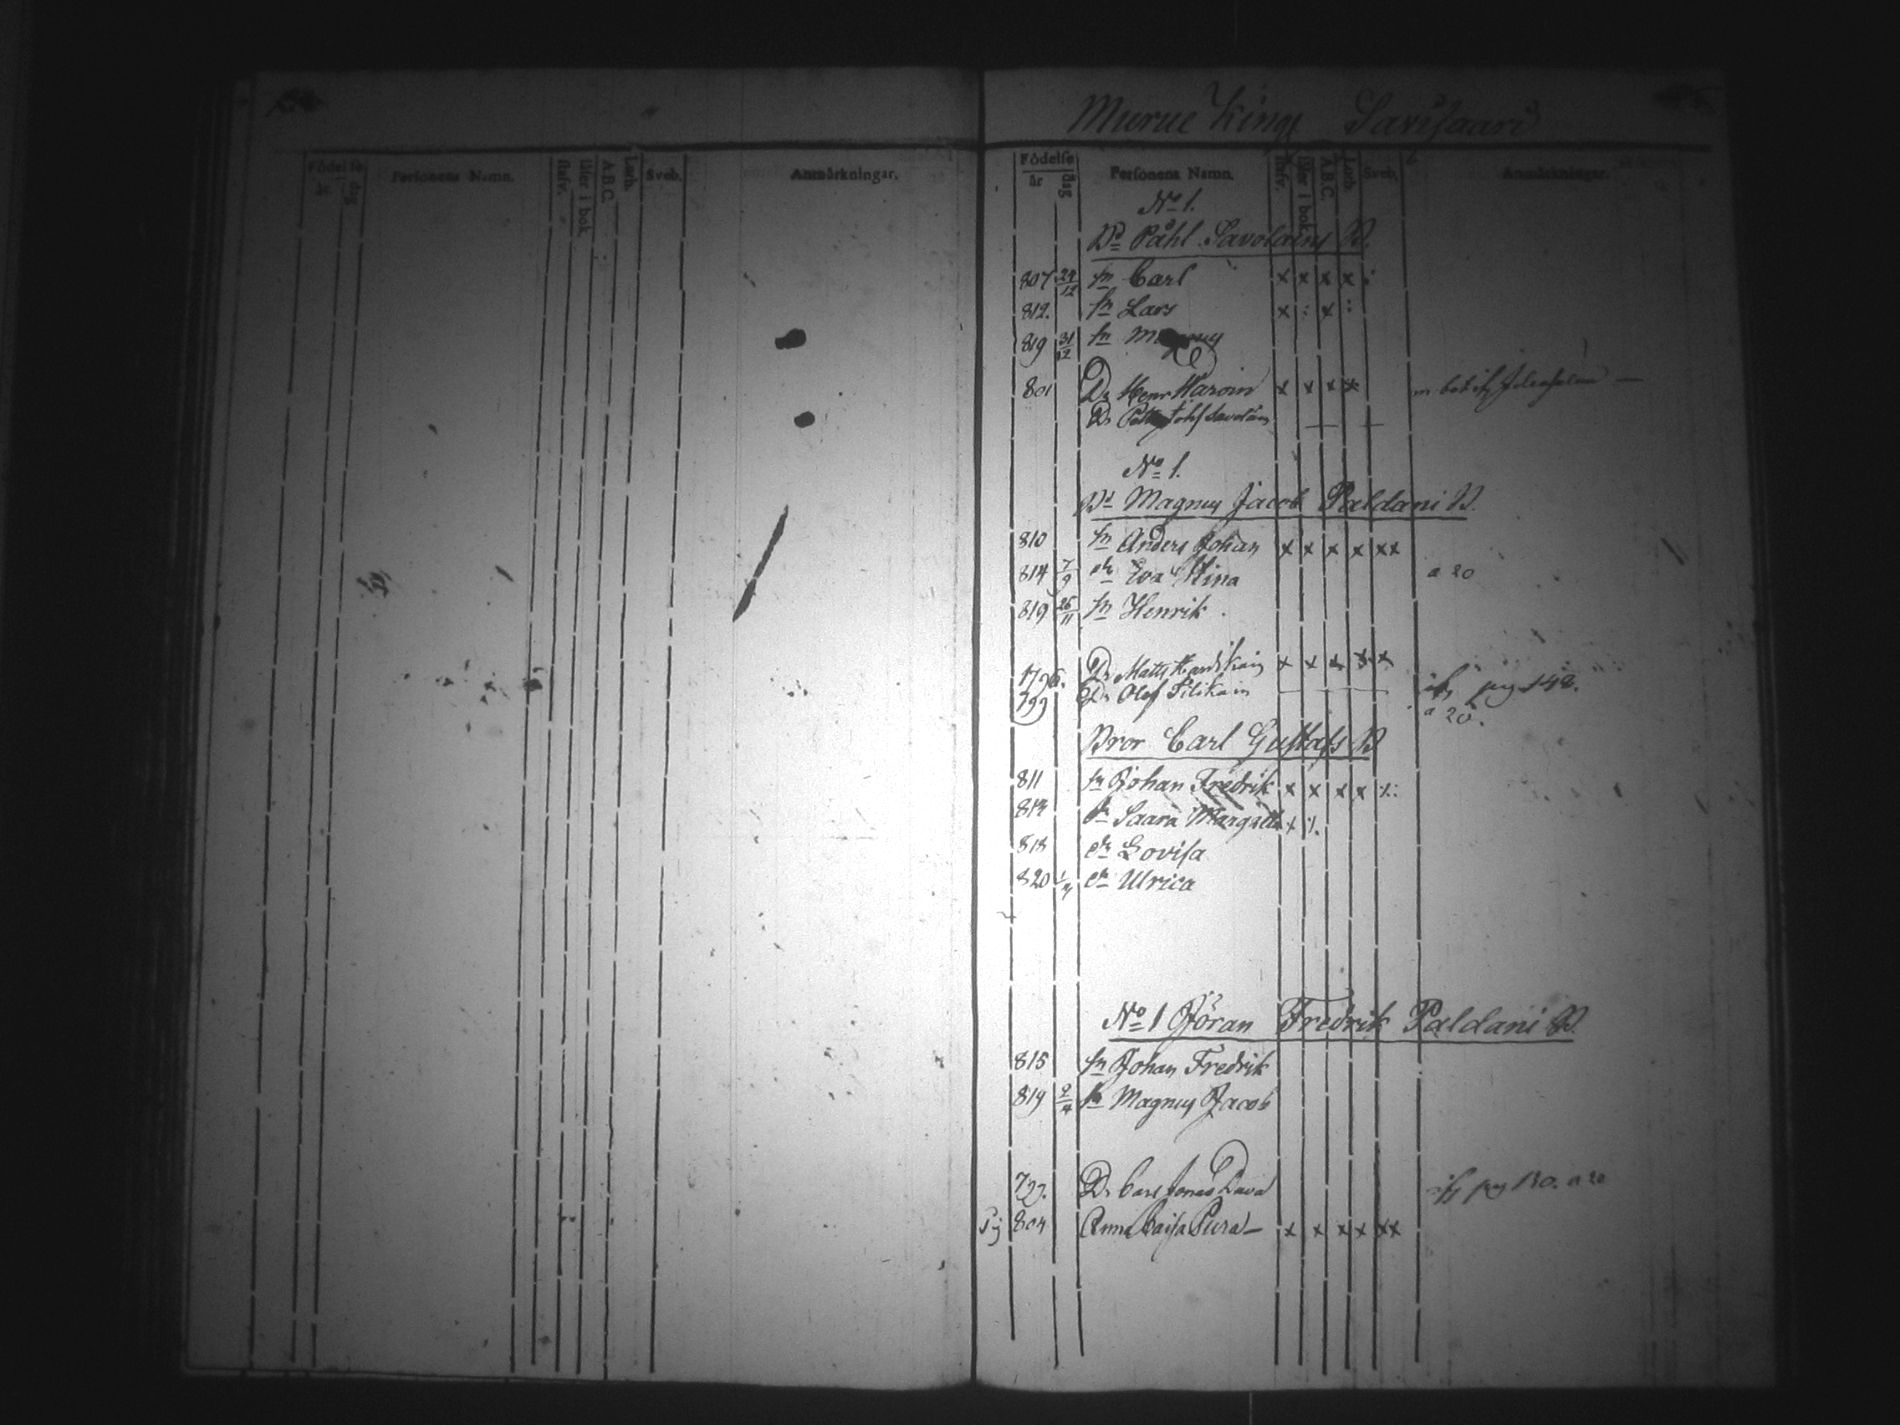 Födelse
år.
dag
Personens Namn.
stafv.
läser i bok.
A.B.C.
Luth.
Sveb.
Anmärkningar.
Murue King Savisaari
Födelse
år
dag
Personens Namn.
stafv.
läser i bok.
A.B.C.
Luth.
Sveb.
Anmärkningar.
No 1.
Bd Påhl Savolains B.
807 24/12 sn Carl x x x x :
812. sn Lars x : x :
819 31/12 sn
801 Dr Henr Haroin x x x x
Dr Johs Savolain
No 1.
Bd Magnus Jacob Paldani B.
810 sn Anders Johan x x x x xx
814 7/9 dr Eva Stina a 20
819 26/11 sn Henrik
1796. Dr Matts x x x x x
799 Dr Olof Pilikain pag 148.
a 20.
Bror Carl Gustafs B
811 sn Johan Fredrik x x x x
dr Saara Margareta
818 dr Lovisa
820 dr Ulrica
No 1 Jöran Fredrik Paldani B.
815 sn Johan Fredrik
819 2/4 sn Magnus Jacob
799. Dr Carl Jonas pag 130. a 20
Pj 804 Anna Caisa Pura x x x x xx